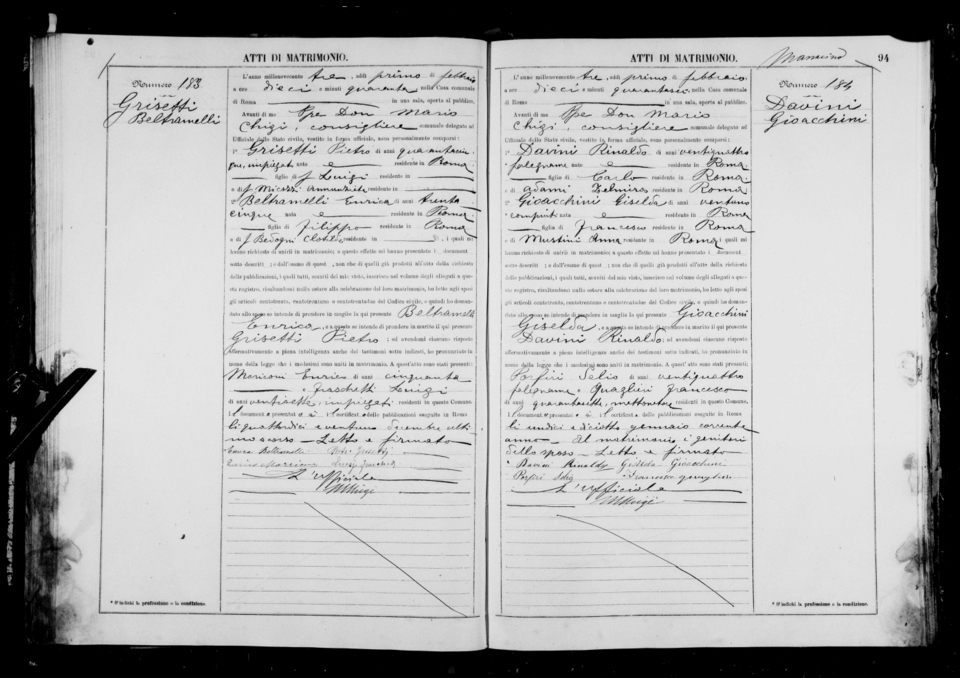 ATTI DI MATRIMONIO.
Numero 183
Grisetti
Beltramelli
L'anno millenovecento tre, addì primo di febbraio
a ore dieci e minuti quaranta, nella Casa comunale
di Roma in una sala, aperta al pubblico.
Avanti di me Ppe Don Mario
Chigi, consigliere comunale delegato ad
Uffiziale dello Stato civile, vestito in forma uffiziale, sono personalmente comparsi:
1º Grisetti Pietro di anni quarantacin
que, impiegato nato e residente in Roma
figlio di f Luigi residente in
e di f Micozzi Annunziata residente in
2º Beltramelli Enrica di anni trenta
cinque nata e residente in Roma
figlia di Filippo residente in Roma
e di f Bedogni Clotilde residente in ; i quali mi
hanno richiesto di unirli in matrimonio; a questo effetto mi hanno presentato i document
sotto descritti; e dall'esame di quest ; non che di quelli già prodotti all'atto della richiesta
delle pubblicazioni, i quali tutti, muniti del mio visto, inserisco nel volume degli allegati a que-
sto registro, risultandomi nulla ostare alla celebrazione del loro matrimonio, ho letto agli spo-
si gli articoli centotrenta, centotrentuno e centotrentadue del Codice civile, e quindi ho doman-
dato allo sposo se intende di prendere in moglie la qui presente Beltramelli
Enrica, e a questa se intende di prendere in marito il qui presente
Grisetti Pietro; ed avendomi ciascuno risposto
affermativamente a piena intelligenza anche dei testimoni sotto indicati, ho pronunziato in
nome della legge che i medesimi sono uniti in matrimonio. A quest'atto sono stati presenti:
Marconi Enrico di anni cinquanta
e Fraschetti Luigi
di anni ventisette, impiegati residenti in questo Comune.
Il document presentat è il certificato delle pubblicazioni eseguite in Roma
li quattordici e ventuno dicembre ulti
mo scorso - Letto e firmato
Enrica Beltramelli Pietro Grisetti
L'uffiziale
MChigi
* S'indichi la professione o la condizione.
ATTI DI MATRIMONIO.
94
Numero 184
Davini
Gioacchini
L'anno millenovecento tre, addì primo di febbraio
a ore dieci e minuti quarantasei, nella Casa comunale
di Roma in una sala, aperta al pubblico.
Avanti di me Ppe Don Mario
Chigi, consigliere comunale delegato ad
Uffiziale dello Stato civile, vestito in forma uffiziale, sono personalmente comparsi:
1º Davini Rinaldo di anni ventiquattro
falegname nato e residente in Roma
figlio di Carlo residente in Roma
e di Adami Zelmira residente in Roma
2º Gioacchini Giselda di anni ventuno
compiuti nata e residente in Roma
figlia di Francesco residente in Roma
e di Mustini Anna residente in Roma; i quali mi
hanno richiesto di unirli in matrimonio; a questo effetto mi hanno presentato i document
sotto descritti; e dall'esame di quest ; non che di quelli già prodotti all'atto della richiesta
delle pubblicazioni, i quali tutti, muniti del mio visto, inserisco nel volume degli allegati a que-
sto registro, risultandomi nulla ostare alla celebrazione del loro matrimonio, ho letto agli spo-
si gli articoli centotrenta, centotrentuno e centotrentadue del Codice civile, e quindi ho doman-
dato allo sposo se intende di prendere in moglie la qui presente Gioacchini
Giselda, e a questa se intende di prendere in marito il qui presente
Davini Rinaldo; ed avendomi ciascuno risposto
affermativamente a piena intelligenza anche dei testimoni sotto indicati, ho pronunziato in
nome della legge che i medesimi sono uniti in matrimonio. A quest'atto sono stati presenti:
Porfiri di anni ventiquattro
falegname e Quaglieri Francesco
di anni quarantasette, mettonatore residenti in questo Comune.
Il document presentat è il certificato delle pubblicazioni eseguite in Roma
li undici e diciotto gennaio corrente
anno - Al matrimonio i genitori
dello sposo - Letto e firmato
Davini Rinaldo Giselda Gioacchini
Porfiri Francesco
L'uffiziale
MChigi
* S'indichi la professione o la condizione.